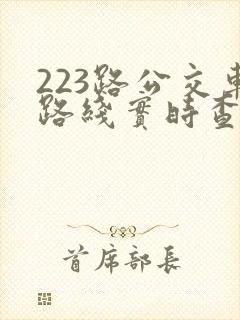 223路公交車
路綫實時查
首席部長